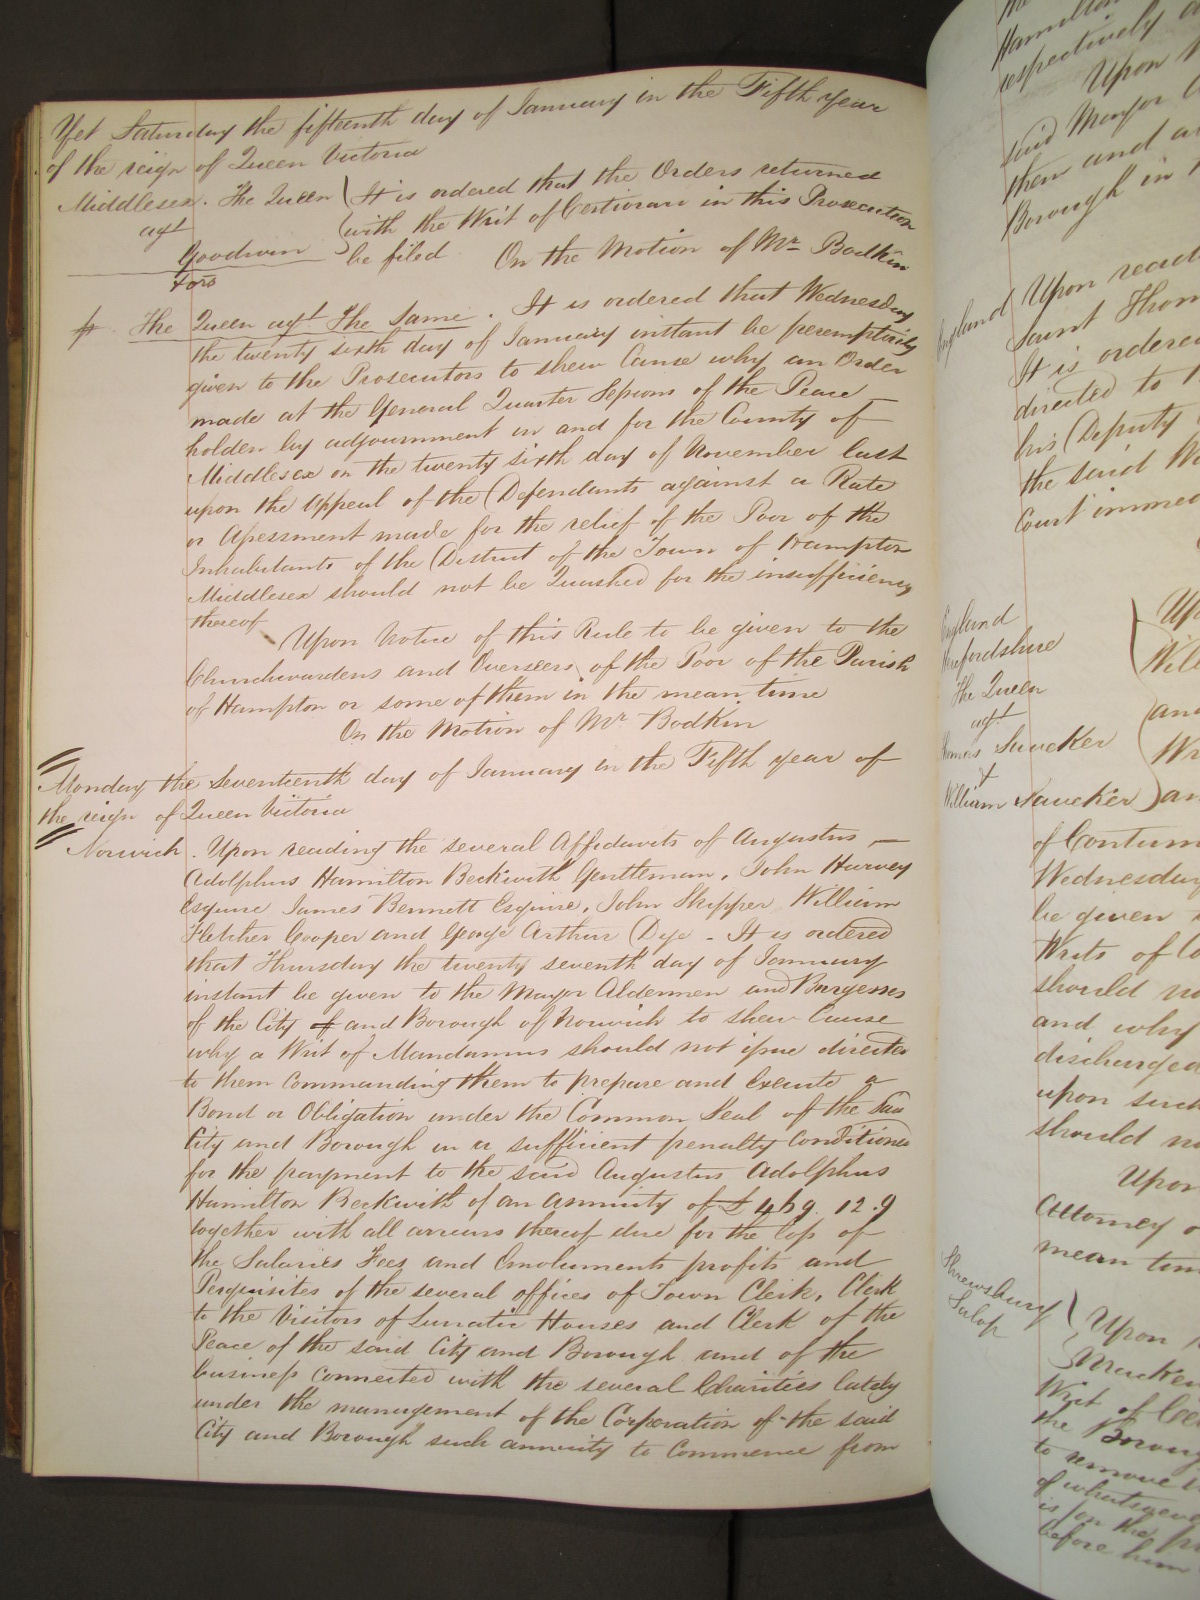 Yet Saturday the fifteenth day of January in the Fifth year
of the reign of Queen Victoria
Middlesex. The Queen
agt
Goodwin
& ors
It is ordered that the Orders returned
with the Writ of Certiorari in this Prosecution
be filed On the Motion of Mr Bodkin
The Queen agt The Same. It is ordered that Wednesday
the twenty sixth day of January instant be peremptorily
given to the Prosecutors to shew Cause why an Order
made at the General Quarter Sessions of the Peace
holden by adjournment in and for the County of
Middlesex on the twenty sixth day of November last
upon the appeal of the Defendants against a Rate
or Assessment made for the relief of the Poor of the
Inhabitants of the District of the Town of Hampton
Middlesex should not be Quashed for the insufficiency
thereof
Upon Notice of this Rule to be given to the
Churchwardens and Overseers of the Poor of the Parish
of Hampton or some of them in the mean time
On the Motion of Mr Bodkin
Monday the Seventeenth day of January in the Fifth year of
the reign of Queen Victoria
Norwich. Upon reading the several Affidavits of Augustus
Adolphus Hamilton Beckwith Gentleman, John Harvey
Esquire James Bennett Esquire, John Skipper William
Fletcher Cooper and George Arthur Dye - It is ordered
that Thursday the twenty seventh day of January
instant be given to the Mayor Aldermen and Burgesses
of the City of and Borough of Norwich to shew Cause
why a Writ of Mandamus should not issue directed
to them Commanding them to prepare and Execute a
Bond or Obligation under the Common Seal of the said
City and Borough in a sufficient penalty Conditioned
for the payment to the said Augustus Adolphus
Hamilton Beckwith of an annuity of £469. 12. 9
together with all arrears thereof due for the loss of
the Salaries Fees and Emoluments profits and
Perquisites of the several offices of Town Clerk, Clerk
to the Visitors of Lunatic Houses and Clerk of the
Peace of the said City and Borough and of the
business connected with the several Charities lately
under the management of the Corporation of the said
City and Borough such annuity to Commence from
Hamilton
respectively
Upon
said Mayor
them and
Borough in
England
Upon read
Saint Thom
It is ordered
directed to
his Deputy
the said
Court immed
England
Herefordshire
The Queen
agt
Thomas Saveker
&
William Saveker
Up
Will
and
Wr
an
of Contem
Wednesday
be given
Writs of
should no
and why
discharged
upon such
should no
Upon
Attorney
mean tim
Shrewsbury
Salop
Upon
Writ of
the Borough
to remove
of whatsoever
is on the
before him